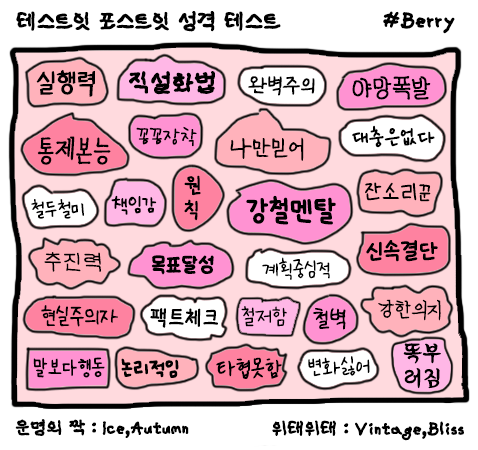 테스트잇 포스트잇 성격 테스트 #Berry
실행력 직설화법 완벽주의 야망폭발
통제본능 꽁꽁장착 나만믿어 대충은없다
철두철미 책임감 원칙 강철멘탈 잔소리꾼
추진력 목표달성 계획중심적 신속결단
현실주의자 팩트체크 철저함 철벽 강한의지
말보다행동 논리적임 타협못함 변화싫어 똑부
러짐
운명의 짝 : Ice,Autumn 위태위태 : Vintage,Bliss